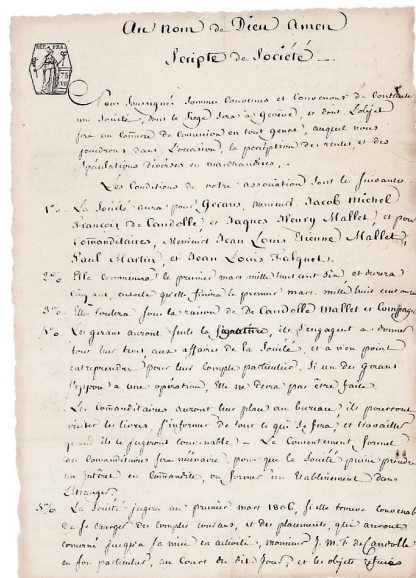 Au Nom de Dieu Amen
Scripte de Société
REP. FRA.
75
Nous Soussignés sommes Convenus et Convenons de Contracter
une Société, dont le Siège sera à Genève, et dont l'objet
sera un Commerce de Commission en tout genre, auquel nous
joindrons dans l'occasion, la perception des rentes, et des
Spéculations diverses en marchandises,
Les Conditions de notre association sont les suivantes
1° La Société aura pour Gérans, messieurs Jacob Michel
François de Candolle et Jaques Henry Mallet, et pour
Comanditaires, Messieurs Jean Louis Etienne Mallet,
Paul Martin, et Jean Louis Falquet.
2° Elle commencera le premier mars mille huit cent six, et durera
Cinq ans, ensorte qu'elle finira le premier mars mille huit cent onze
3° Elle roulera sous la raison de de Candolle Mallet et Compagnie
Les gerans auront seuls la Signature, ils s'engagent à donner
tout leur tems, aux affaires de la Société, et à n'en point
entreprendre pour leur compte particulier. Si un des gerans
s'oppose à une opération, Elle ne devra pas être faite
Les Comanditaires auront leur place au bureau, ils pourront
visiter les livres, s'informer de tout ce qui se fera, et travailler
quand ils le jugeront convenable – Le Consentement formel
des Comanditaires sera nécessaire, pour que la Société puisse prendre
un Intérêt en Comandite, ou former un Etablissement dans
l'Etranger
5° La Société jugera au premier mars 1806, si elle trouve convenable
de se charger des comptes courans, et des placements, qui auront
concerné jusqu'à sa mise en activité, monsieur J. M. F. de Candolle
en son particulier, au Cours du dit Jour, et les objets refusés